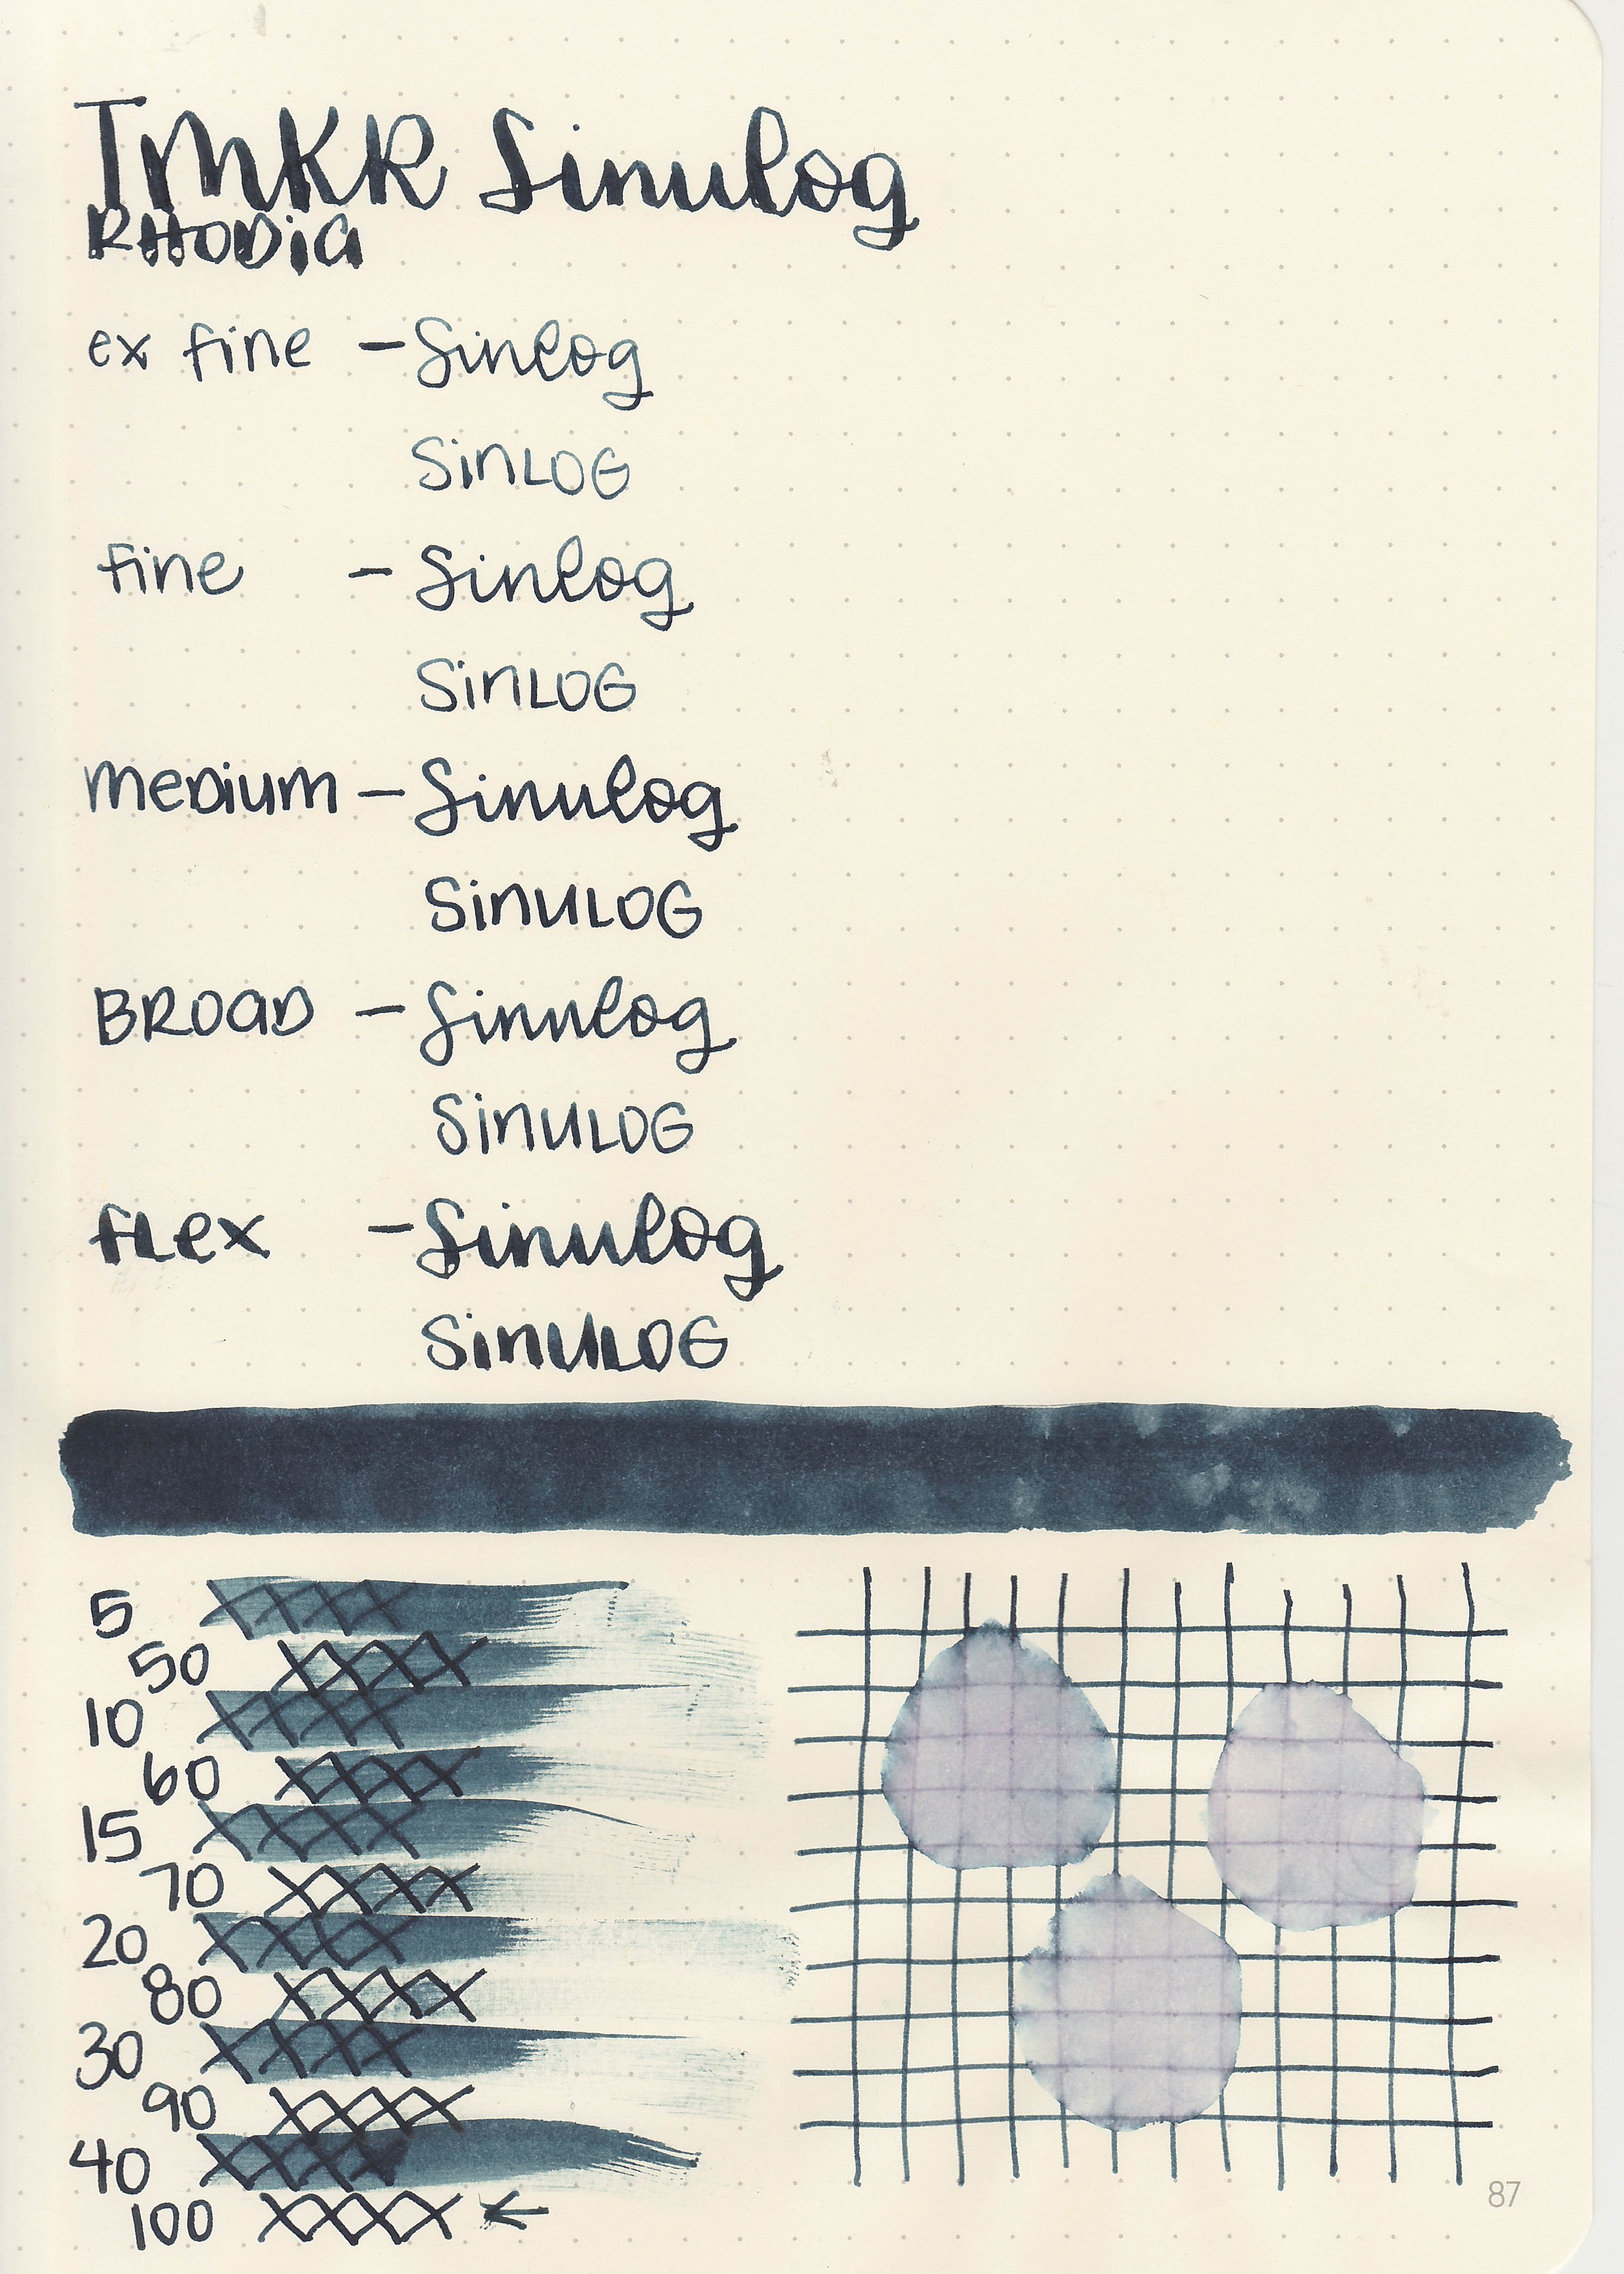 TMKR Sinulog
RHODiA
ex fine - Sinlog
SinLOG
fine - Sinlog
SinLOG
meDium - Sinulog
SinULOG
BROAD - Sinulog
SinULOG
fLex - Sinulog
SinULOG
5
50
10
60
15
70
20
80
30
90
40
100
87